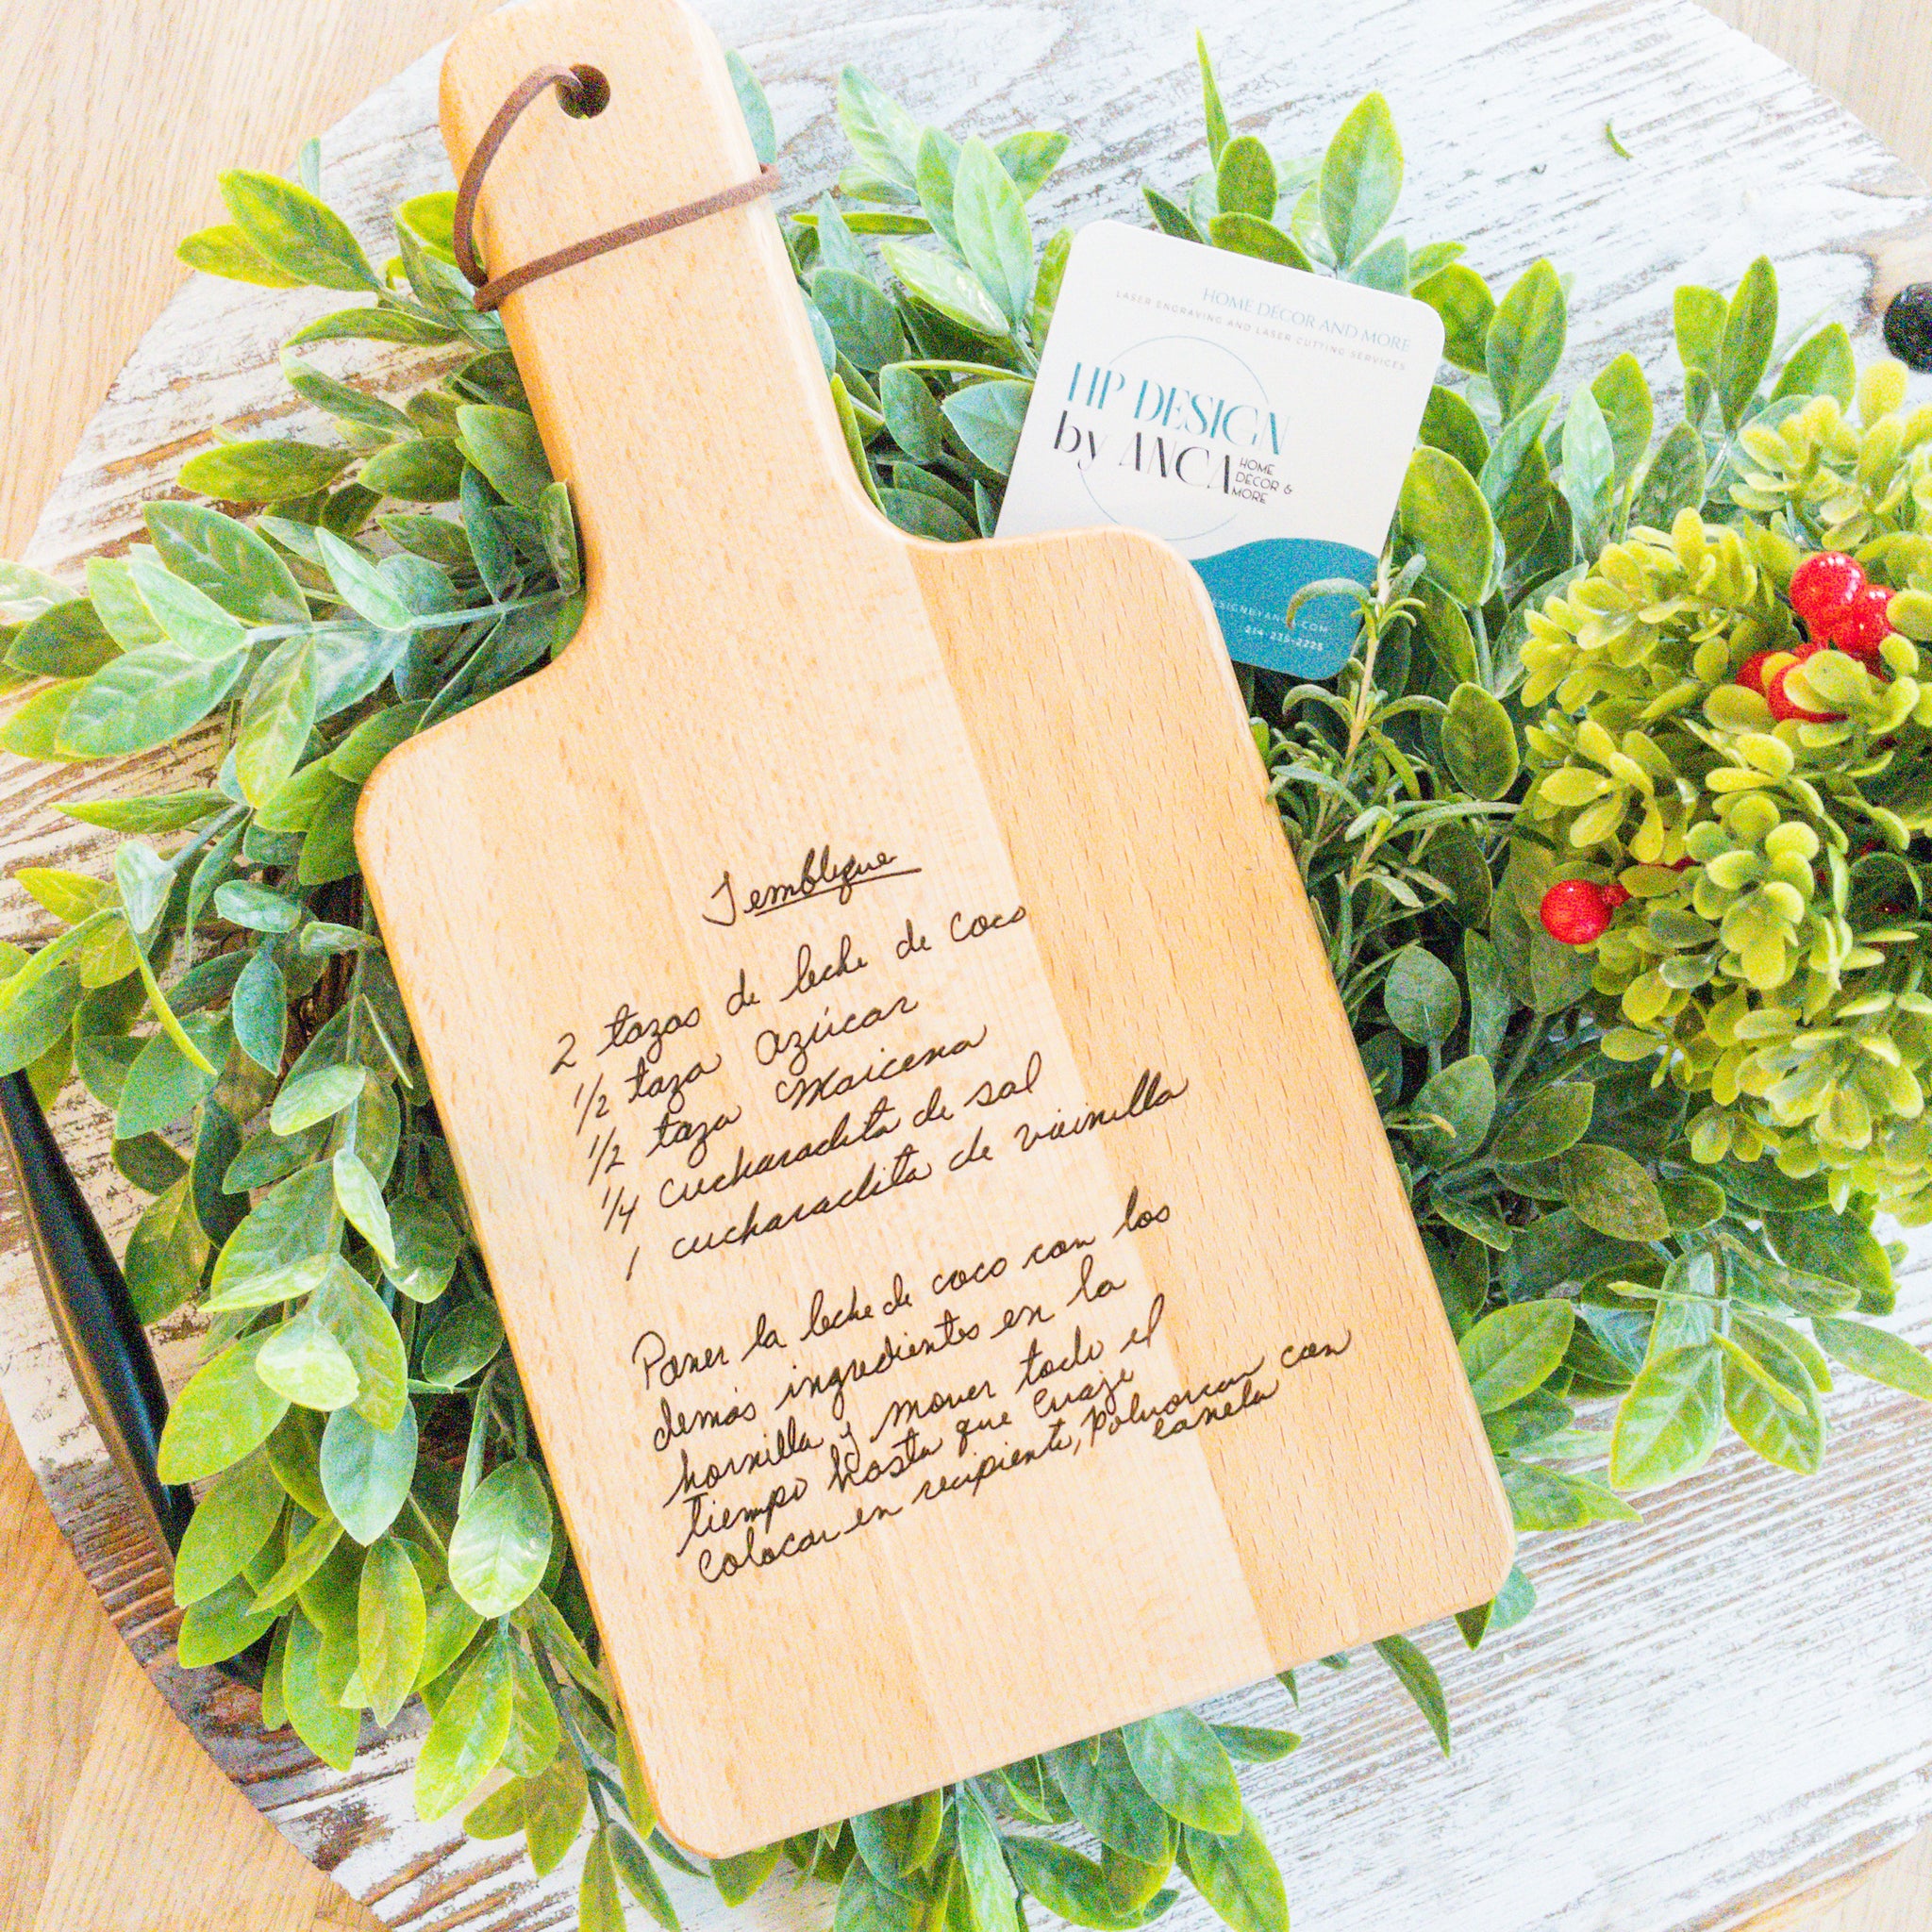 HOME DÉCOR AND MORE
LASER ENGRAVING AND LASER CUTTING SERVICES
HP DESIGN
by ANCA
HOME
DÉCOR &
MORE
214-235-2225
Temblique
2 tazas de leche de coco
1/2 taza azúcar
1/2 taza Maicena
1/4 cucharadita de sal
1 cucharadita de vainilla
Poner la leche de coco con los
demás ingredientes en la
hornilla y mover todo el
tiempo hasta que cuaje
Colocar en recipiente, polvorear con
canela